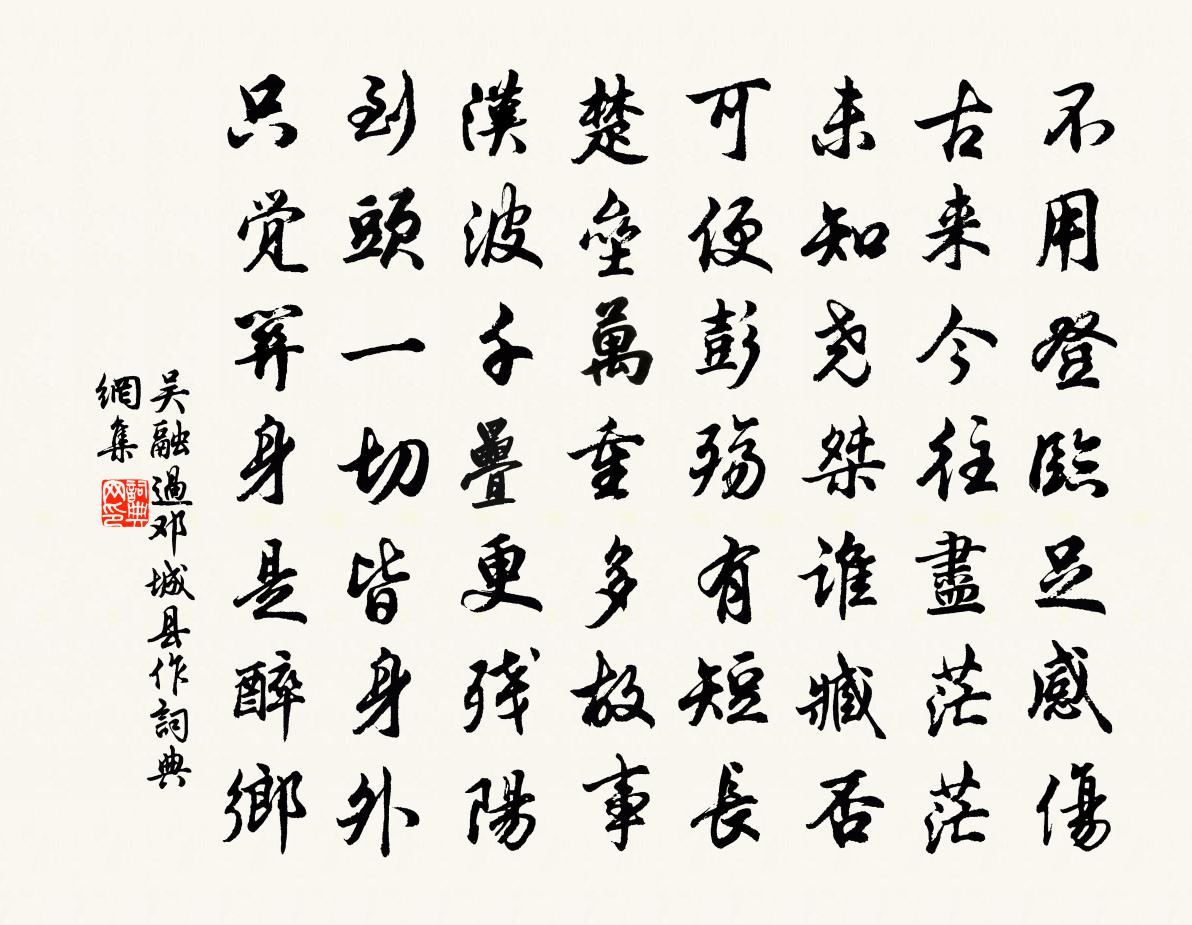 不用登臨足感傷
古来今往盡茫茫
未知尧桀谁臧否
可便彭殇有短長
楚垒萬重多故事
漢波千疊更残陽
到頭一切皆身外
只觉関身是醉鄉
吴融過邓城县作詞典
網集
詞典
网印